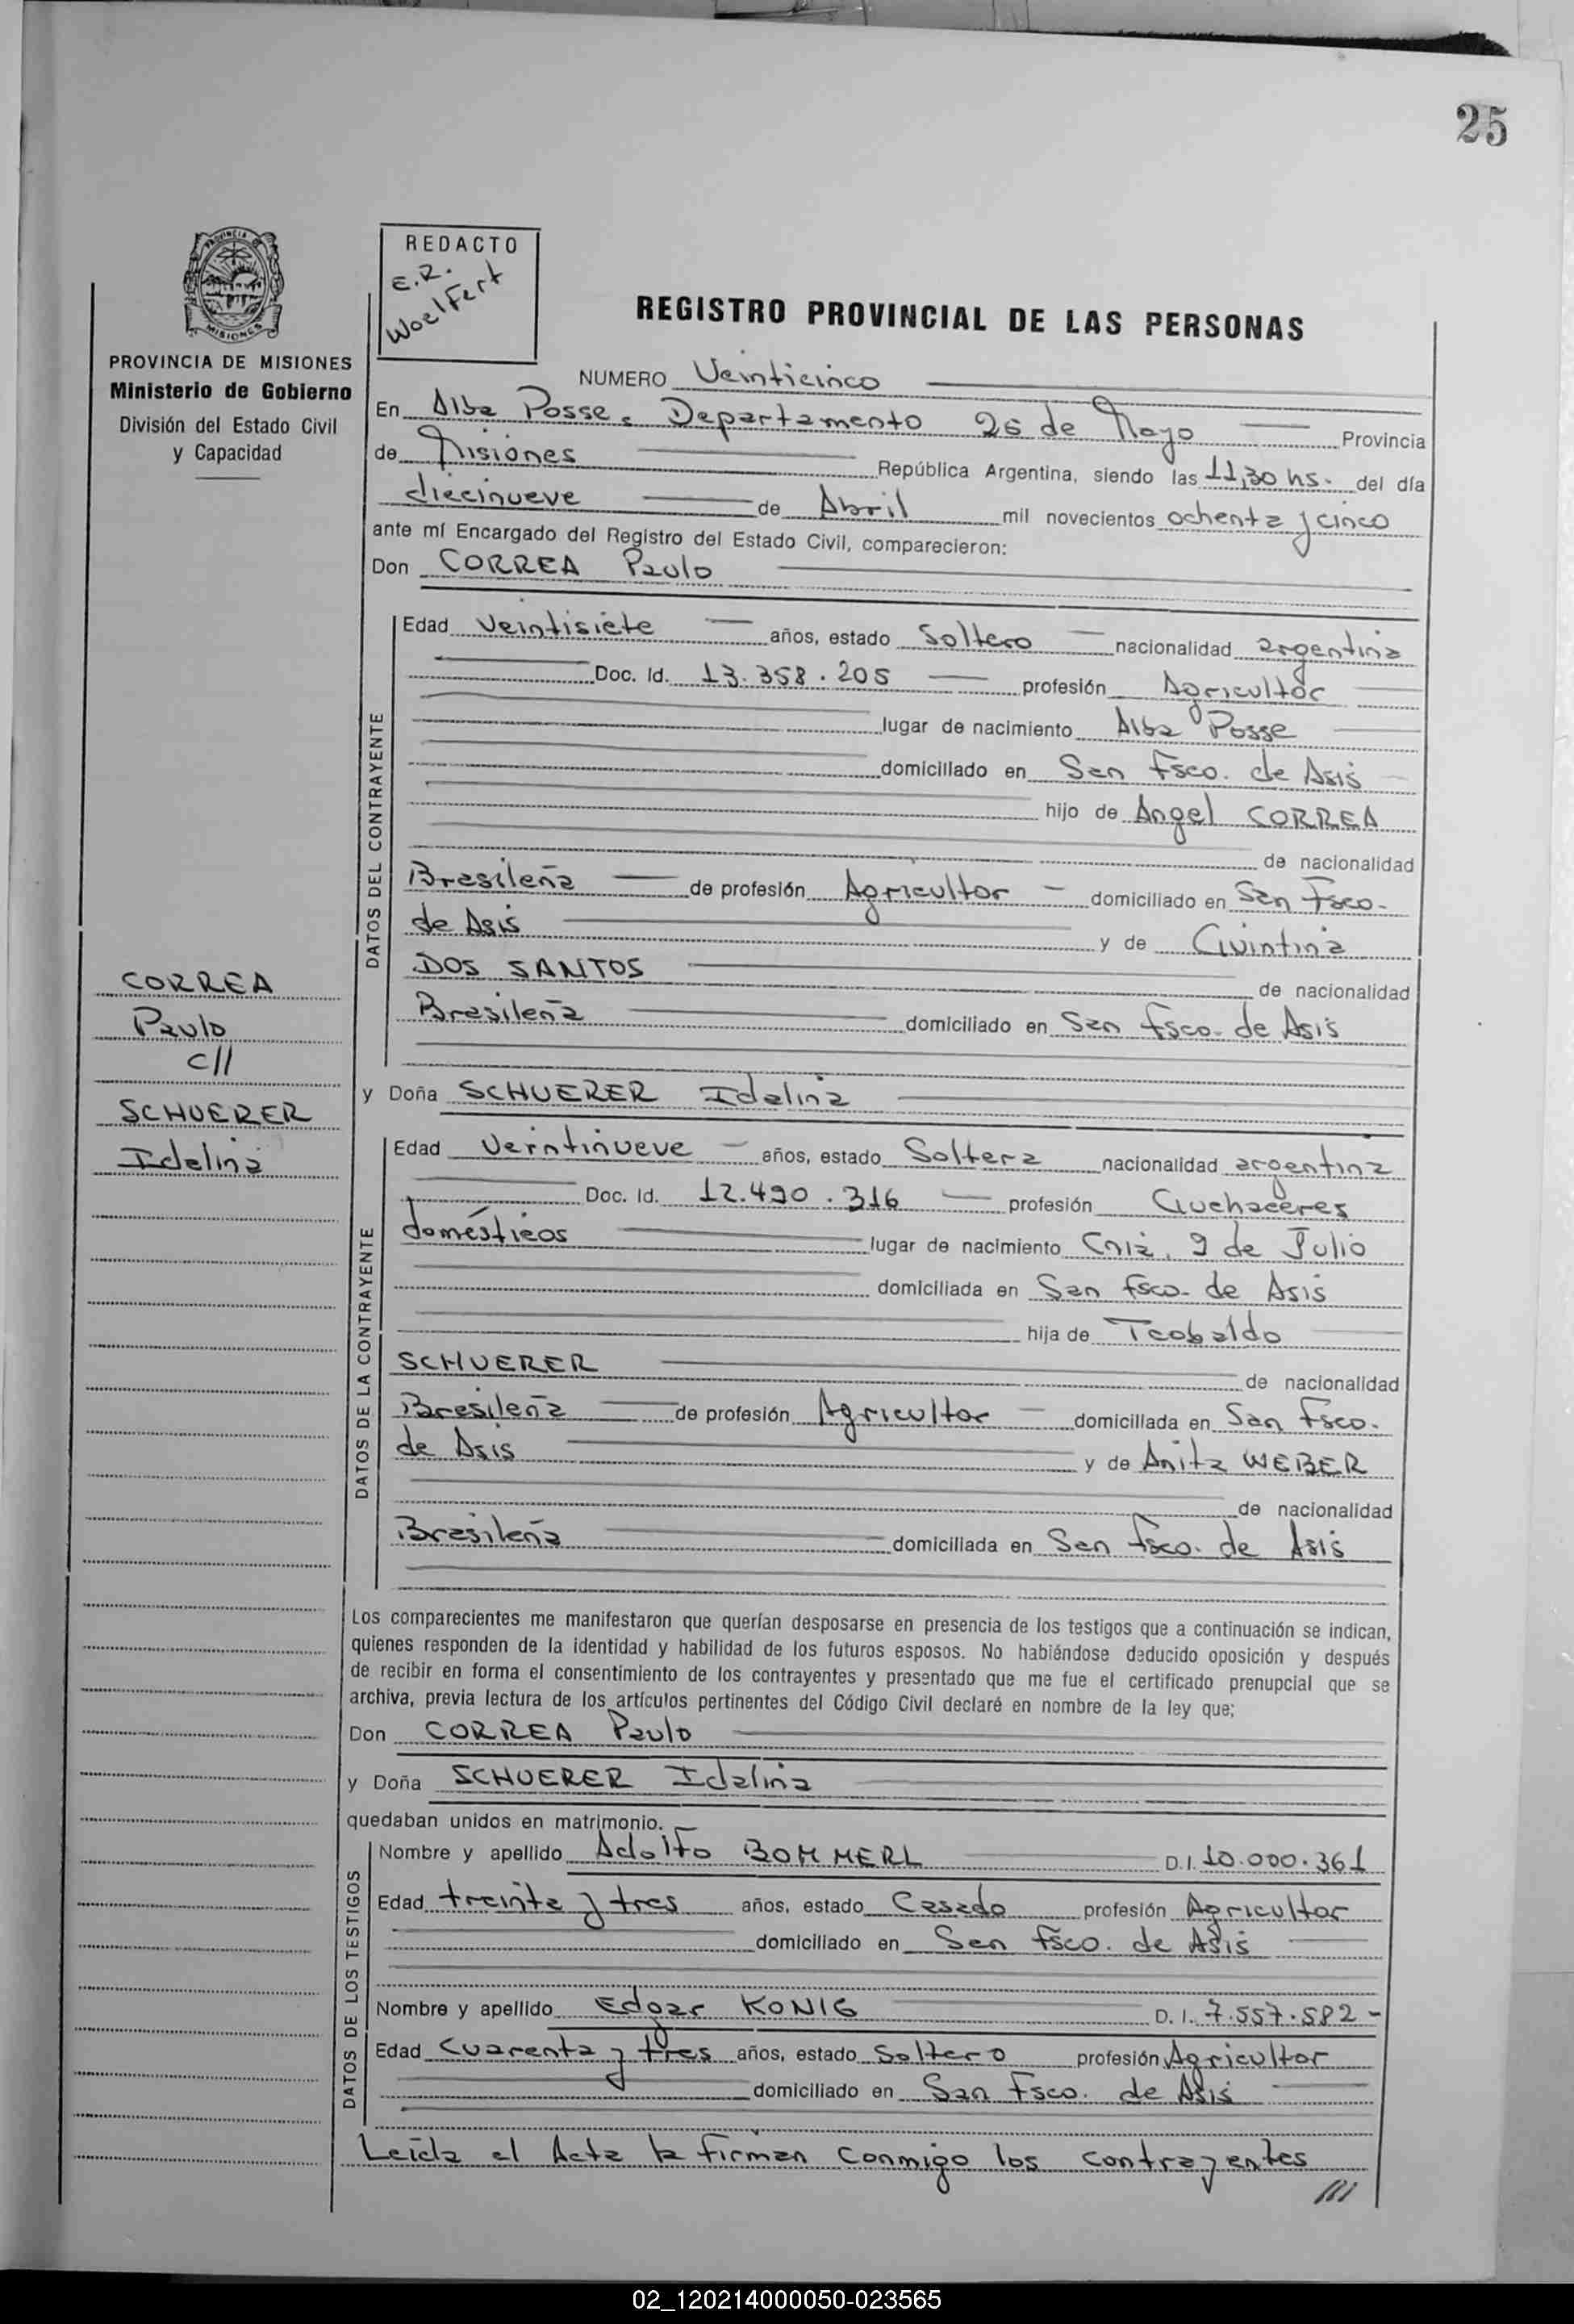 25
PROVINCIA DE MISIONES
Ministerio de Gobierno
División del Estado Civil
y Capacidad
REDACTO
E.R.
Woelfert
REGISTRO PROVINCIAL DE LAS PERSONAS
NUMERO Veinticinco
En Alba Posse. Departamento 25 de Mayo Provincia
de Misiones República Argentina, siendo las 11,30 hs. del día
diecinueve de Abril mil novecientos ochenta y cinco
ante mí Encargado del Registro del Estado Civil, comparecieron:
Don CORREA Paulo
DATOS DEL CONTRAYENTE
Edad Veintisiete años, estado Soltero nacionalidad argentina
Doc. Id. 13.358.205 profesión Agricultor
lugar de nacimiento Alba Posse
domiciliado en San Fsco. de Asis
hijo de Angel CORREA
de nacionalidad
Brasileña de profesión Agricultor domiciliado en San Fsco.
de Asis y de Quintina
DOS SANTOS de nacionalidad
Brasileña domiciliado en San Fsco. de Asis
CORREA
Paulo
c//
SCHUERER
Idalina
y Doña SCHUERER Idalina
DATOS DE LA CONTRAYENTE
Edad Veintinueve años, estado Soltera nacionalidad argentina
Doc. Id. 12.490.316 profesión Quehaceres
domésticos lugar de nacimiento Cnia. 9 de Julio
domiciliada en San Fsco. de Asis
hija de Teobaldo
SCHUERER de nacionalidad
Brasileña de profesión Agricultor domiciliada en San Fsco.
de Asis y de Anita WEBER
de nacionalidad
Brasileña domiciliada en San Fsco. de Asis
Los comparecientes me manifestaron que querían desposarse en presencia de los testigos que a continuación se indican,
quienes responden de la identidad y habilidad de los futuros esposos. No habiéndose deducido oposición y después
de recibir en forma el consentimiento de los contrayentes y presentado que me fue el certificado prenupcial que se
archiva, previa lectura de los artículos pertinentes del Código Civil declaré en nombre de la ley que;
Don CORREA Paulo
y Doña SCHUERER Idalina
quedaban unidos en matrimonio.
DATOS DE LOS TESTIGOS
Nombre y apellido Adolfo BOMMERL D.I. 10.000.361
Edad treinta y tres años, estado Casado profesión Agricultor
domiciliado en San Fsco. de Asis
Nombre y apellido Edgar KONIG D. I. 7.557.582-
Edad Cuarenta y tres años, estado Soltero profesión Agricultor
domiciliado en San Fsco. de Asis
Leída el Acta la firman conmigo los contrayentes
///
02_120214000050-023565